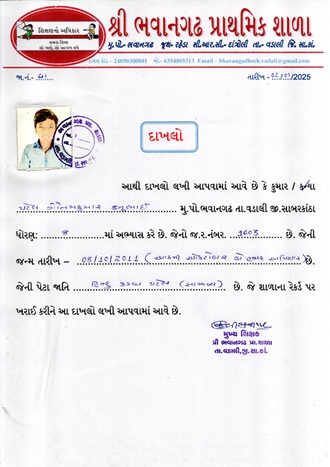 શિક્ષણનો અધિકાર
શ્રી ભવાનગઢ પ્રાથમિક શાળા
મુ.પો.-ભવાનગઢ જૂથ- રહેડા સી.આર.સી.- દાંત્રોલી તા.- વડાલી જિ.સા.કાં.
- 24050300801 મો.- 6354005313 Email - bhavangadherk.vadali@gmail.com
જા.નં.-
તારીખ - /2025
દાખલો
આથી દાખલો લખી આપવામાં આવે છે કે કુમાર / કન્યા
પટેલ મુ.પો.ભવાનગઢ તા.વડાલી જી.સાબરકાંઠા
ધોરણ: માં અભ્યાસ કરે છે. જેનો જ.ર.નંબર 1603 છે. જેની
જન્મ તારીખ - 08/10/2011 ( આઠમી ઓક્ટોબર બે હજાર અગિયાર ) છે.
જેની પેટા જાતિ હિન્દુ કડવા પટેલ છે. જે શાળાના રેકર્ડ પર
ખરાઈ કરીને આ દાખલો લખી આપવામાં આવે છે.
મુખ્ય શિક્ષક
શ્રી ભવાનગઢ પ્રા.શાળા
તા.વડાલી,જી.સા.કાં.